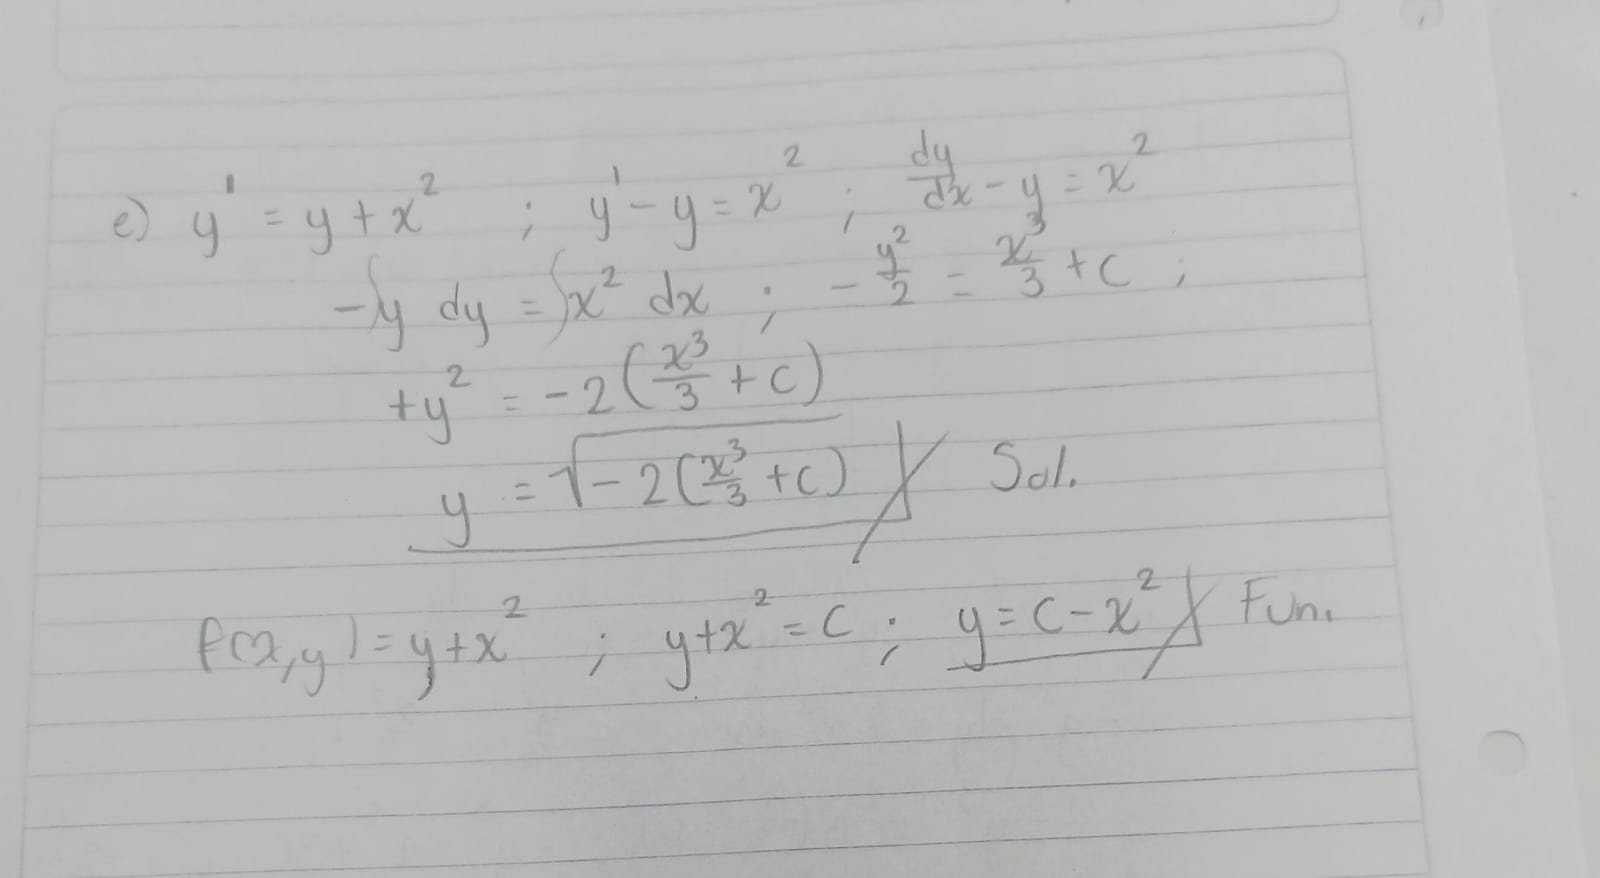 e) y' = y + x² ; y' - y = x² ; dy/dx - y = x²
-∫y dy = ∫x² dx ; - y²/2 = x³/3 + c ;
+y² = -2(x³/3 + c)
y = √-2(x³/3 + c) Sol.
f(x,y) = y + x² ; y + x² = c ; y = c - x² Fun.